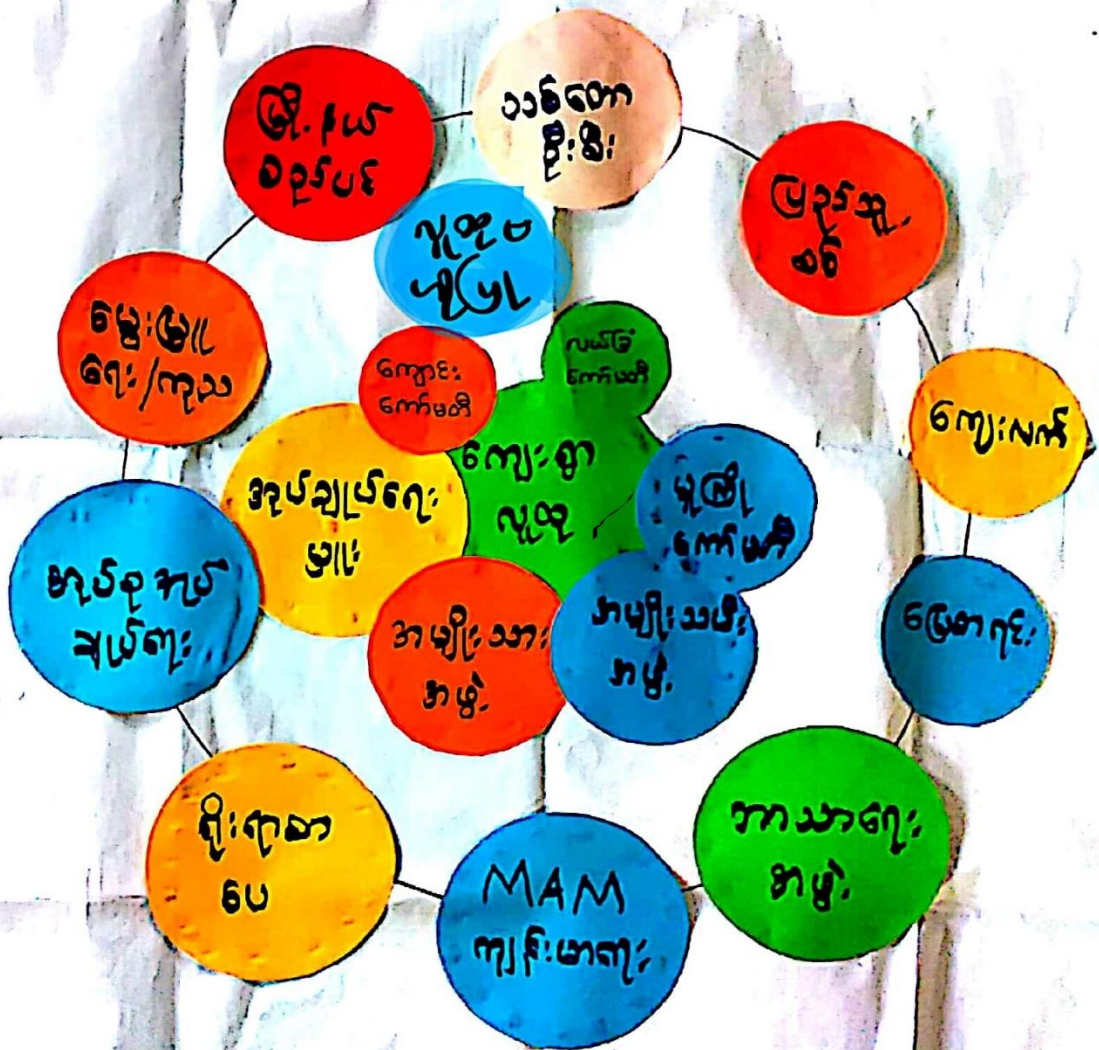 မြို့နယ်
စည်ပင်
သစ်တော
ဦးစီး
ပြည်သူ့
စစ်
လူထုဗ
ဟိုပြု
မွေးမြူ
ရေး/ကုသ
ကျောင်း
ကော်မတီ
လယ်မြေ
ကော်မတီ
ကျေးလက်
ကျေးရွာ
လူထု
အုပ်ချုပ်ရေး
မှူး
မူကြို
ကော်မတီ
အုပ်စုအုပ်
ချုပ်ရေး
အမျိုးသား
အဖွဲ့
အမျိုးသမီး
အဖွဲ့
မြေစာရင်း
ရိုးရာစာ
ပေ
MAM
ကျန်းမာရေး
ဘာသာရေး
အဖွဲ့